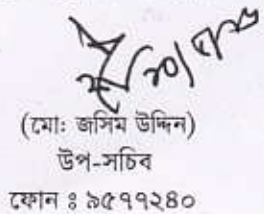 (মোঃ জসিম উদ্দিন)
উপ-সচিব
ফোন ঃ ৯৫৭৭২৪০